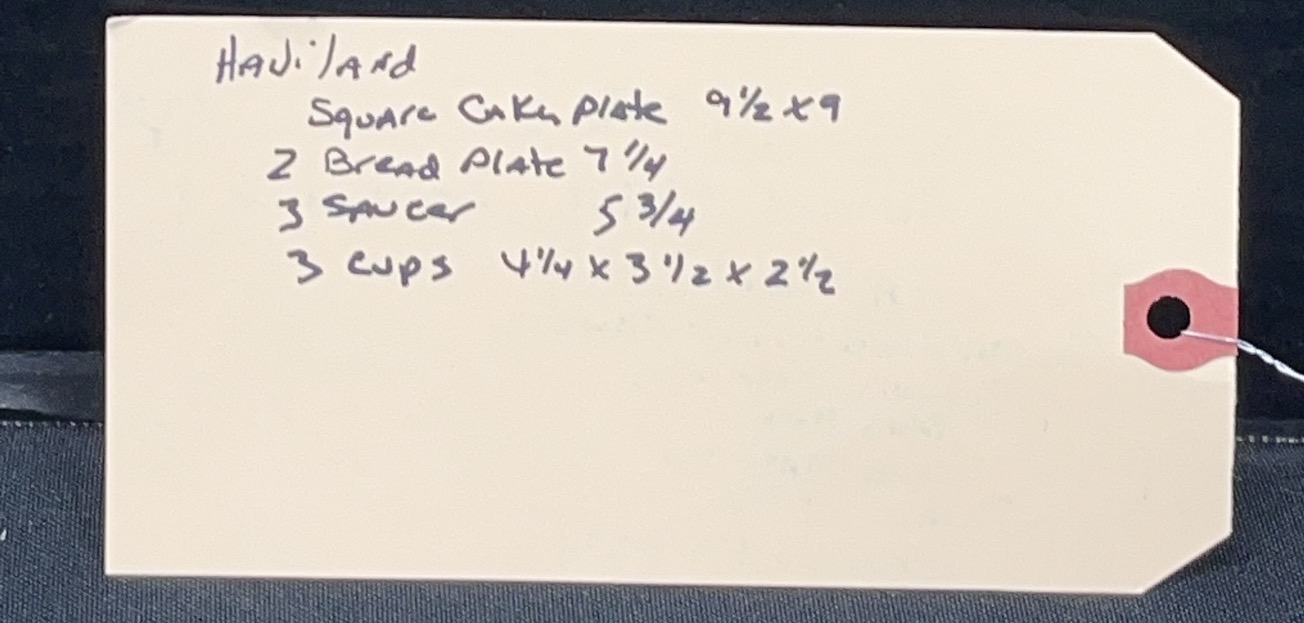 Haviland
Square Cake Plate 9 1/2 x 9
2 Bread Plate 7 1/4
3 Saucer 5 3/4
3 Cups 4 1/4 x 3 1/2 x 2 1/2